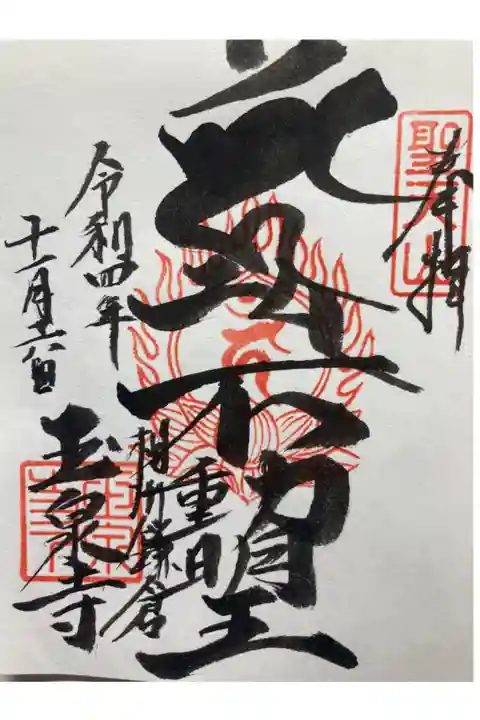 奉拝
聖天山
不動明王
相州鎌倉
玉泉寺
令和四年
十一月十六日